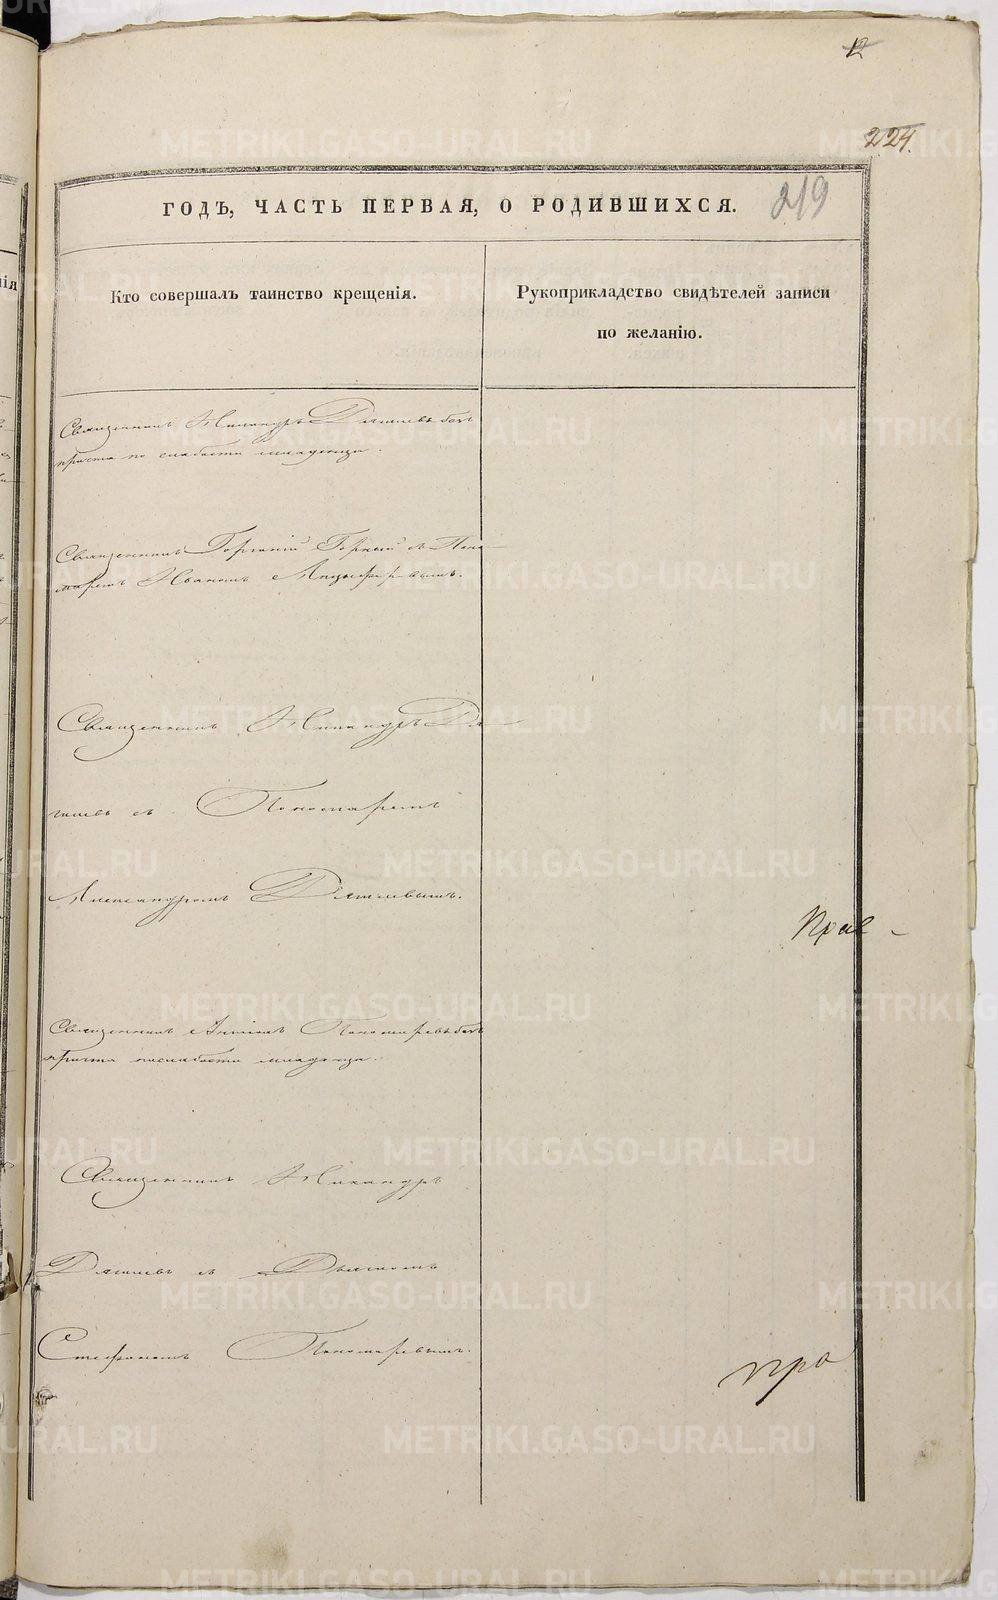 12
224.
219
ГОДЪ, ЧАСТЬ ПЕРВАЯ, О РОДИВШИХСЯ.
ія
Кто совершалъ таинство крещенія.
Рукоприкладство свидѣтелей записи
по желанію.
Священникъ Никандръ безъ
причта по слабости младенца.
Священникъ Горный съ Поно-
маремъ Иваномъ
Священникъ Никандръ Дя-
гилевъ съ Пономаремъ
Александромъ Дягилевымъ.
Священникъ Пономаревъ безъ
причта по слабости младенца.
Священникъ Никандръ
Дягилевъ съ Дьячкомъ
Стефаномъ Пономаревымъ.
METRIKI.GASO-URAL.RU